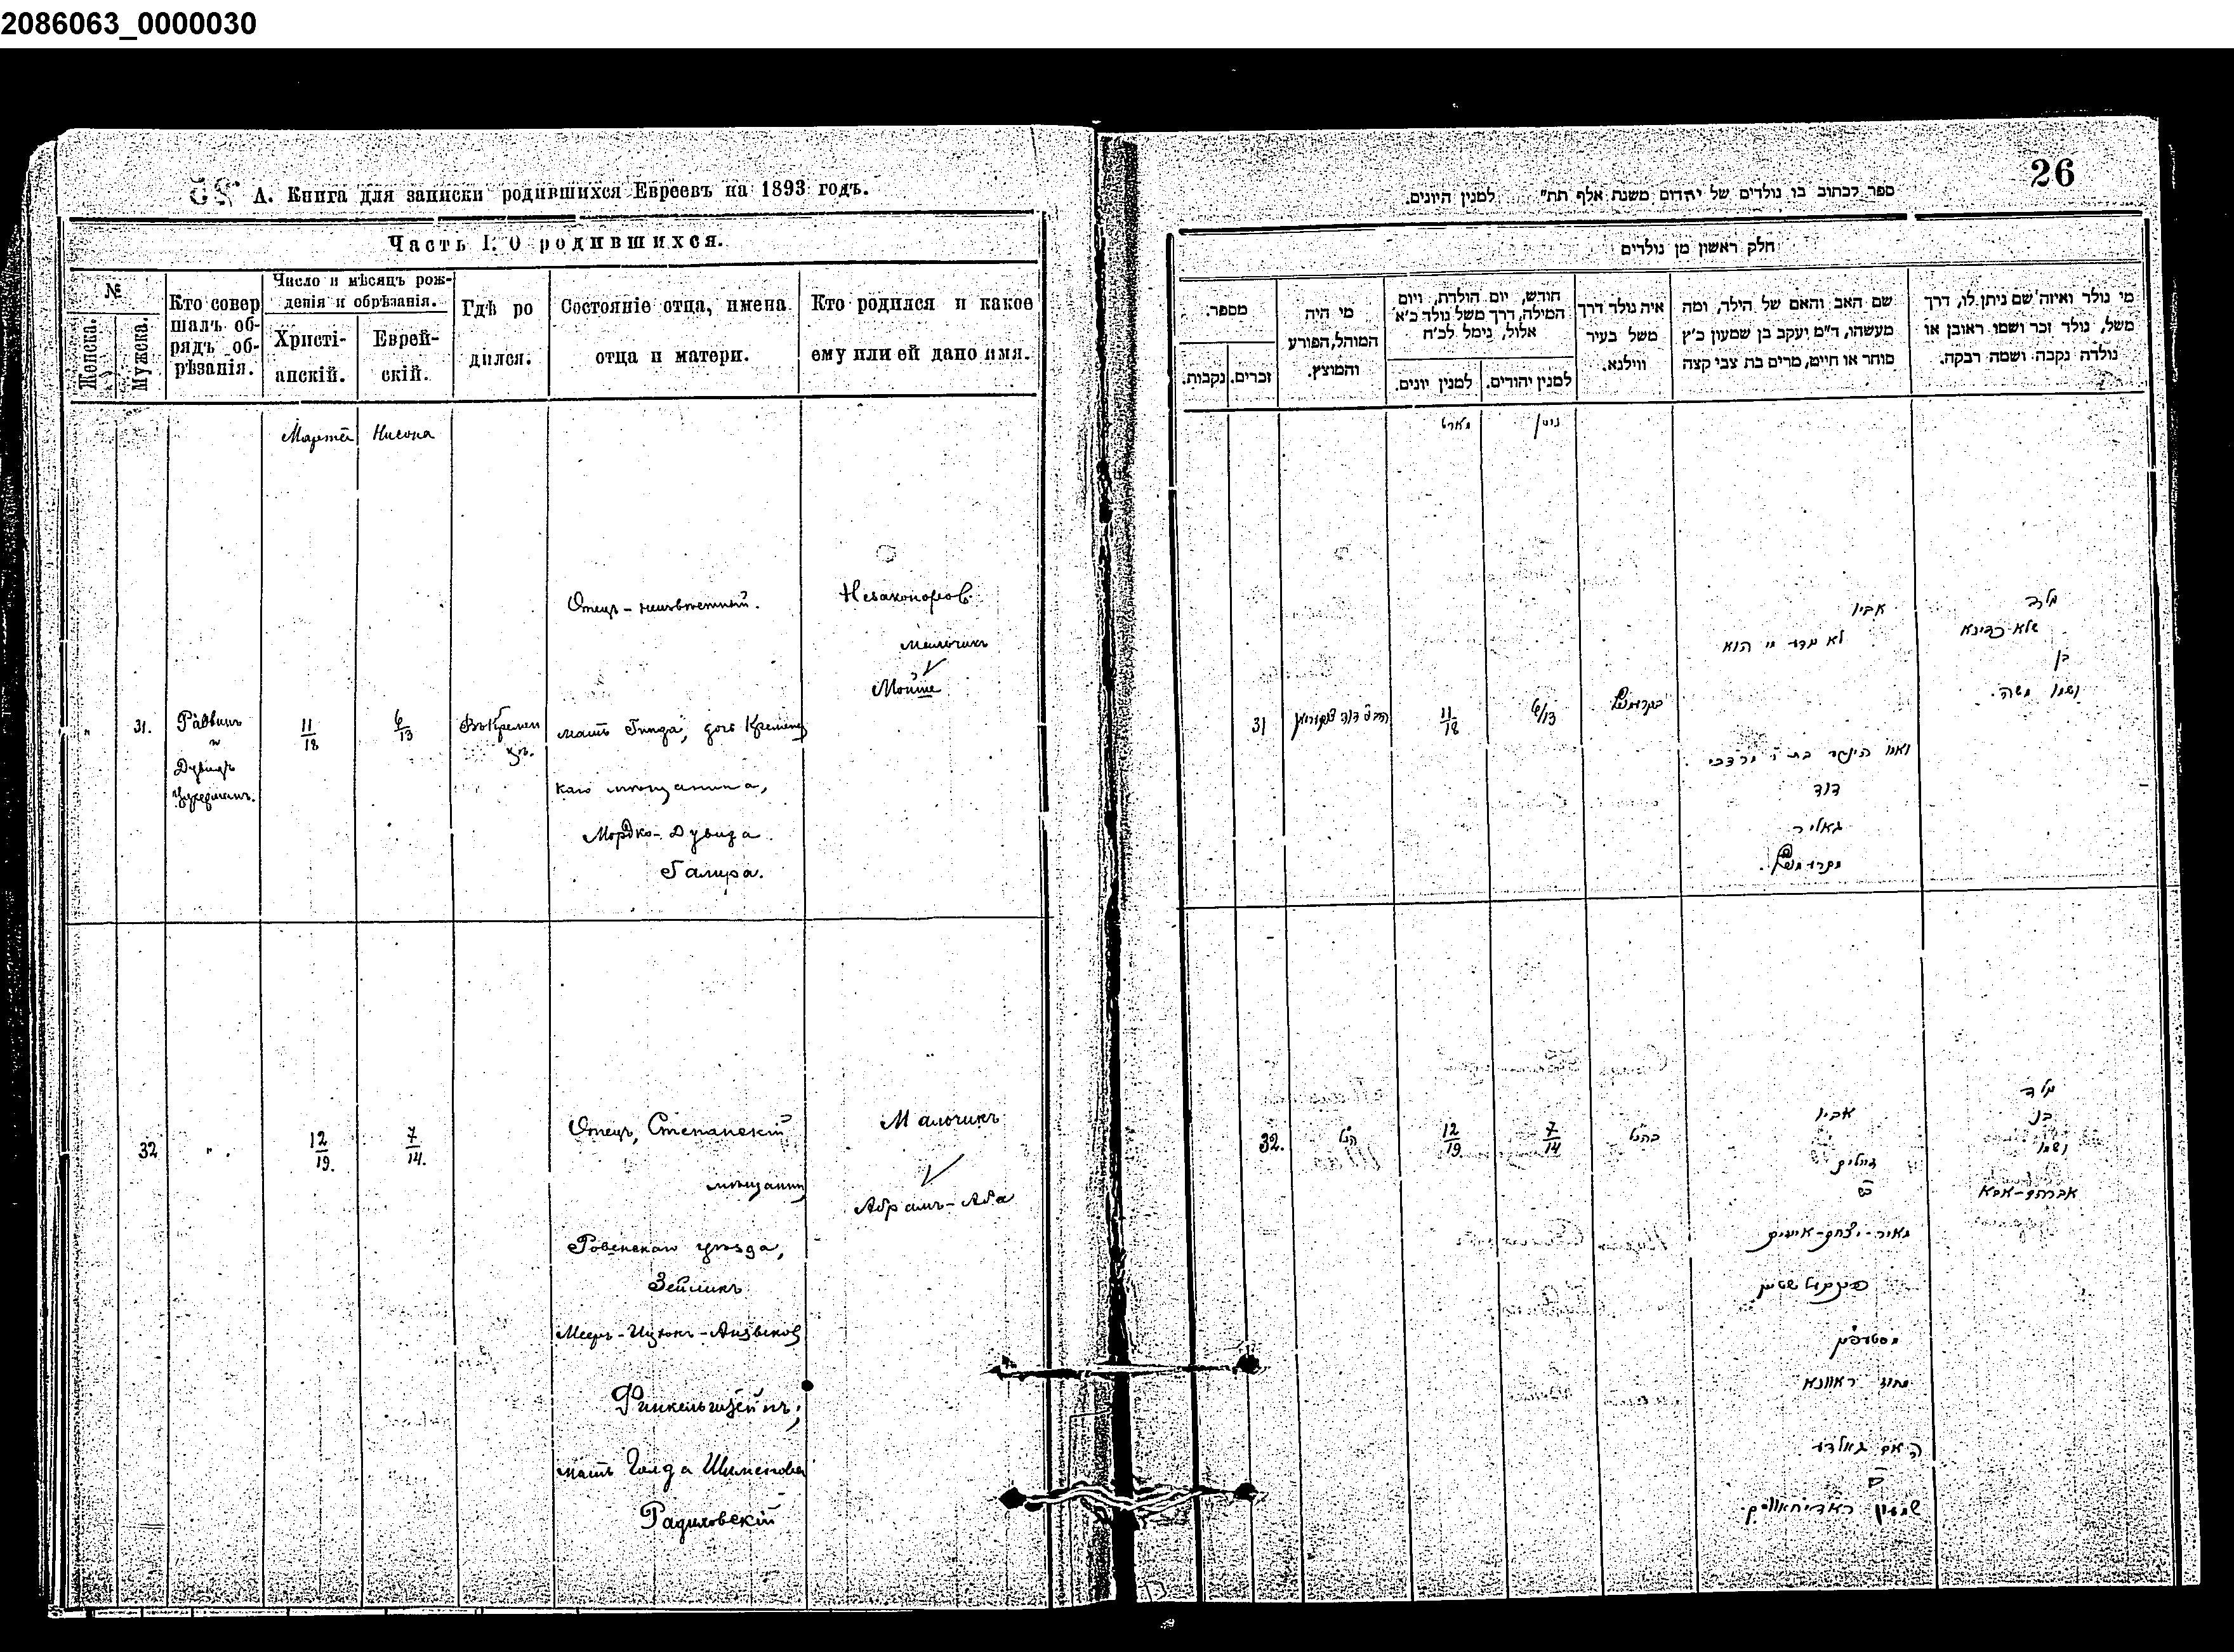 2086063_0000030
25
А. Книга для записки родившихся Евреевъ на 1893 годъ.
Часть I. О родившихся.
№
Женска.
Мужска.
Кто совер
шалъ об-
рядъ об-
рѣзанія.
Число и мѣсяцъ рож-
денія и обрѣзанія.
Христі-
анскій.
Еврей-
скій.
Гдѣ ро
дился.
Состояніе отца, имена
отца и матери.
Кто родился и какое
ему или ей дано имя.
Марта
Нисона
31.
Раввинъ
и
Дувидъ
Цукерманъ.
11
18
6
13
Въ Кремен
цѣ.
Отецъ - неизвѣстный.
мать Гинда, дочь Кременец
каго мѣщанина,
Мордко-Дувида
Галира.
Незаконорож.
мальчикъ
Мойше
32
12
19.
7
14.
Отецъ, Степанскій
мѣщанинъ
Ровенскаго уѣзда,
Зейликъ
Мееръ-Ицхокъ-Айзиковъ
Финкельштейнъ;
мать Голда Шименова
Радиховскій
Мальчикъ
Абрамъ-Аба
26
ספר לכתוב בו נולדים של יהודים משנת אלף תת" למנין היונים.
חלק ראשון מן נולדים
מספר.
נקבות.
זכרים.
מי היה
המוהל, הפורע
והמוצץ.
חודש, יום הולדת, ויום
המילה, דרך משל נולד כ"א
אלול, נימל לכ"ח
למנין יונים.
למנין יהודים.
איה נולד דרך
משל בעיר
ווילנא.
שם האב והאם של הילד, ומה
מעשהו, ד"מ יעקב בן שמעון כ"ץ
סוחר או חיים, מרים בת צבי קצה
מי נולד ואיזה שם ניתן לו, דרך
משל, נולד זכר ושמו ראובן או
נולדה נקבה ושמה רבקה.
מארט
ניסן
31
11
18
6/13
אביו
לא נודע מי הוא
ואמו הינדא בת ר' מרדכי
דוד
גאליר
ילד
שלא כדינא
בן
ושמו משה.
32.
הנ"ל
12
19
7
14
כהנ"ל
אביו
זייליק
ב"ר
מאיר-יצחק-אייזיק
פינקעלשטיין
מסטעפין
מחוז ראוונא
האם גאלדא
ב"ר
שמעון ראדיחאווסקי.
ילד
בן
ושמו
אברהם-אבא